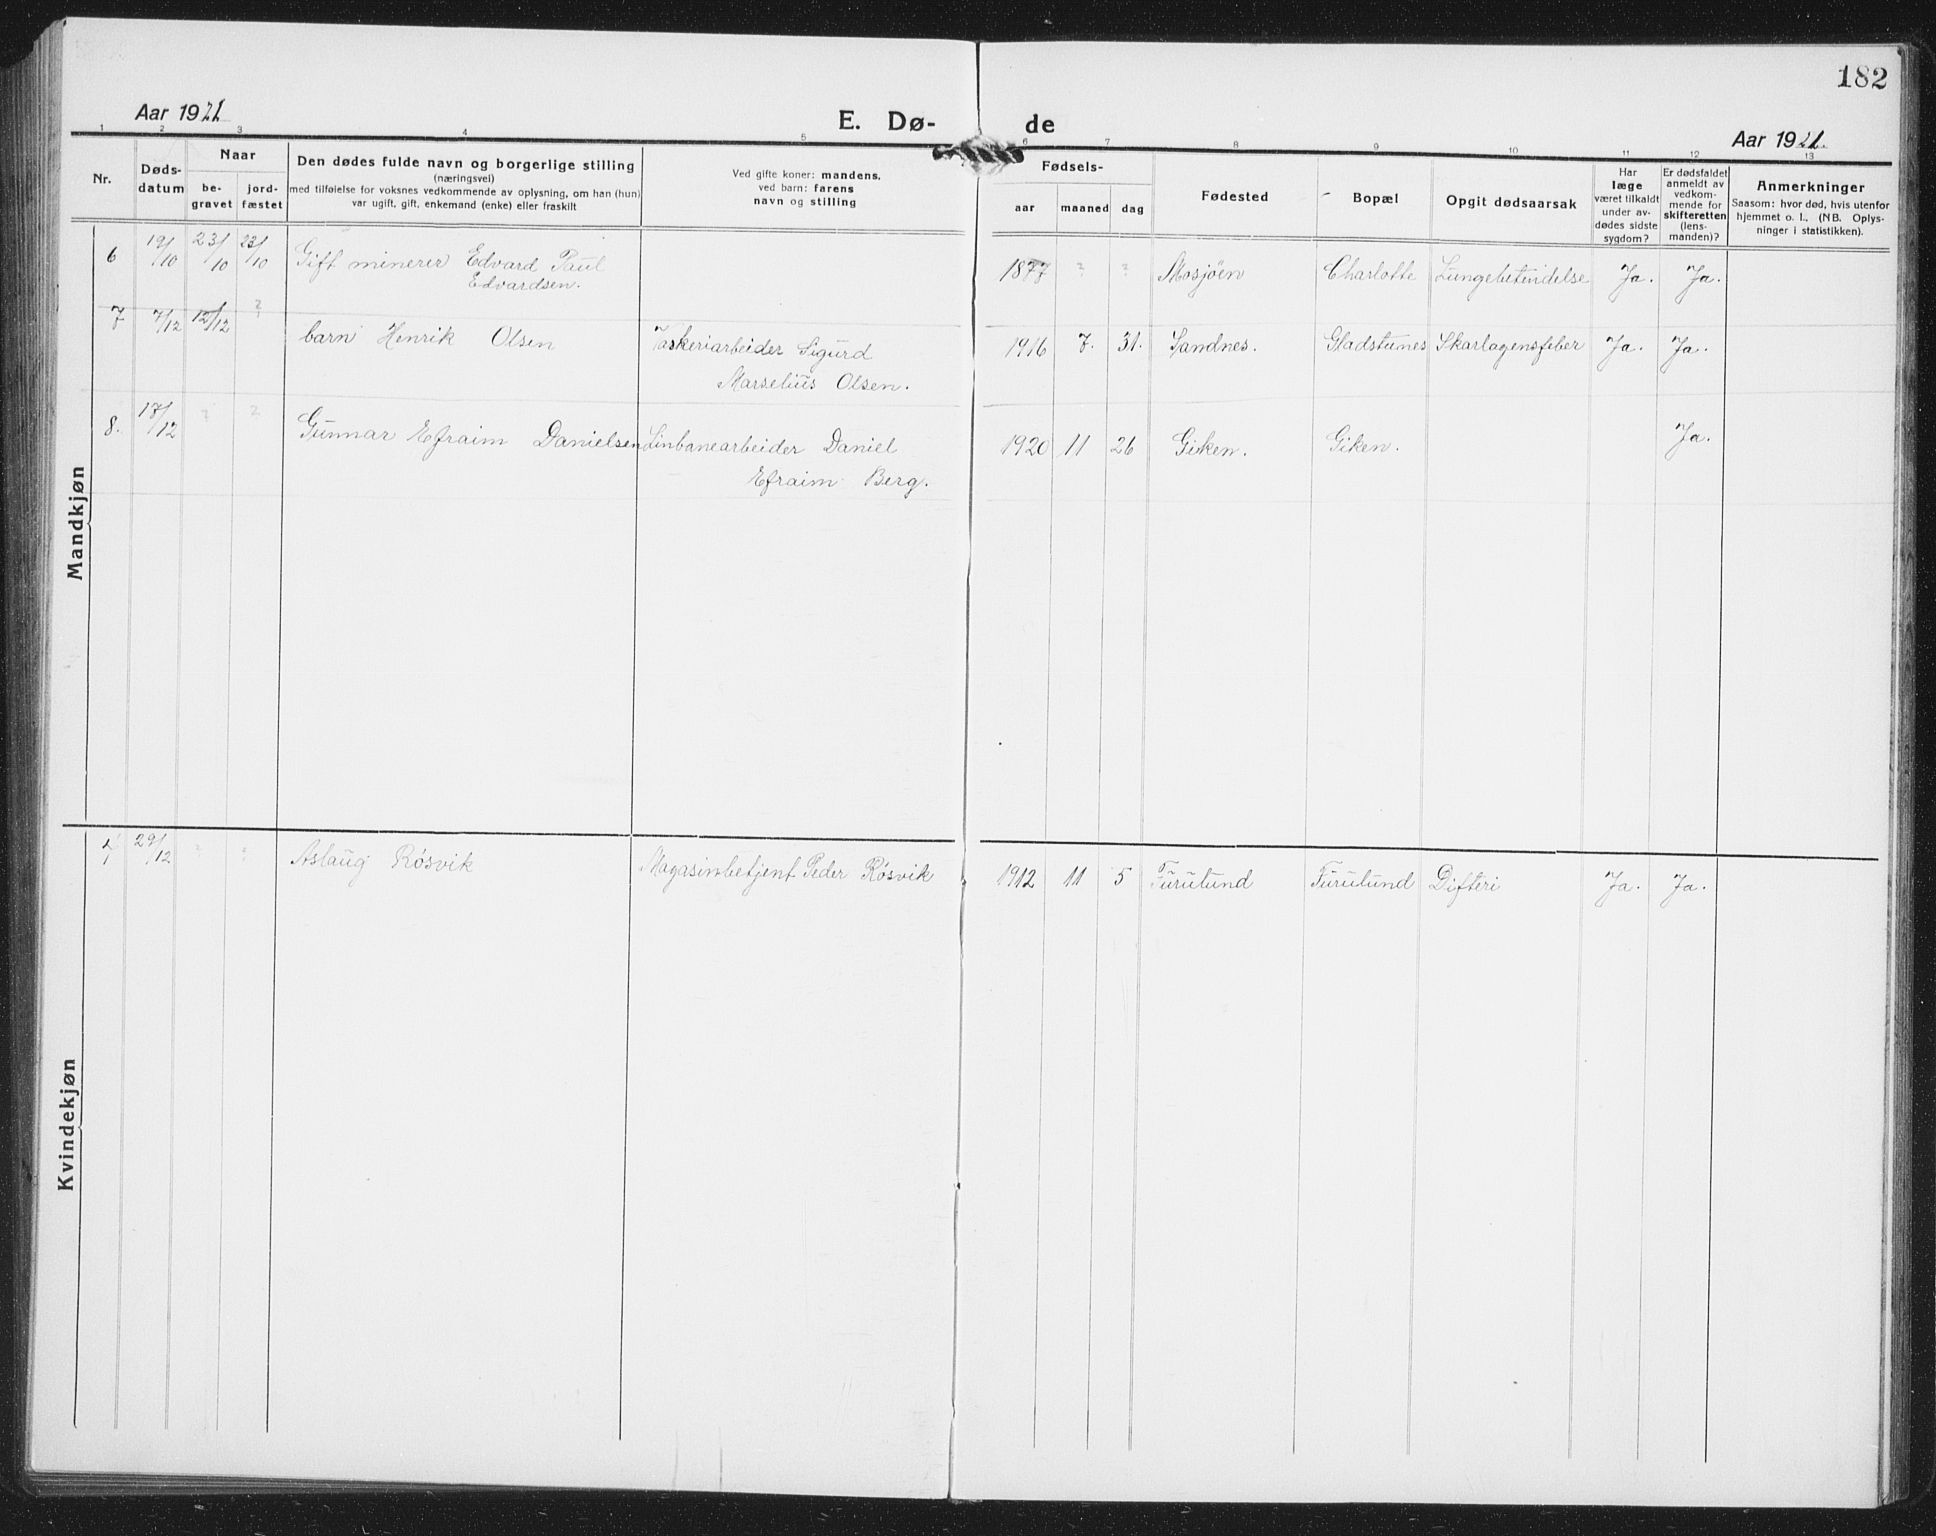 182
Aar 1921
E. Dø-
de
Aar 1921.
1 2 3 4 5 6 7 8 9 10 11 12 13
Nr.
Døds-
datum
Naar
be-
gravet
jord-
fæstet
Den dødes fulde navn og borgerlige stilling
(næringsvei)
med tilføielse for voksnes vedkommende av oplysning, om han (hun)
var ugift, gift, enkemand (enke) eller fraskilt
Ved gifte koner: mandens,
ved barn: farens
navn og stilling
Fødsels-
aar
maaned
dag
Fødested
Bopæl
Opgit dødsaarsak
Har
læge
været tilkaldt
under av-
dødes sidste
sygdom?
Er dødsfaldet
anmeldt av
vedkom-
mende for
skifteretten
(lens-
manden)?
Anmerkninger
Saasom: hvor død, hvis utenfor
hjemmet o. l., (NB. Oplys-
ninger i statistikken).
Mandkjøn
6 19/10 23/10 23/10 Gift minerer Edvard Paul
Edvardsen.
1877 ? ? Mosjöen Charlotte Lungebetendelse Ja. Ja.
7 7/12 12/12 ? barn Henrik Olsen Vaskeriarbeider Sigurd
Marselius Olsen.
1916 7. 31. Sandnes. Gladstunes Skarlagensfeber Ja. Ja.
8. 17/12 ? ? Gunnar Efraim Danielsen Linbanearbeider Daniel
Efraim Berg.
1920 11 26 Giken. Giken. Ja.
Kvindekjøn
29/12 ? ? Aslaug Rösvik Magasinbetjent Peder Rösvik
1912 11 5 Furulund Furulund Difteri Ja. Ja.